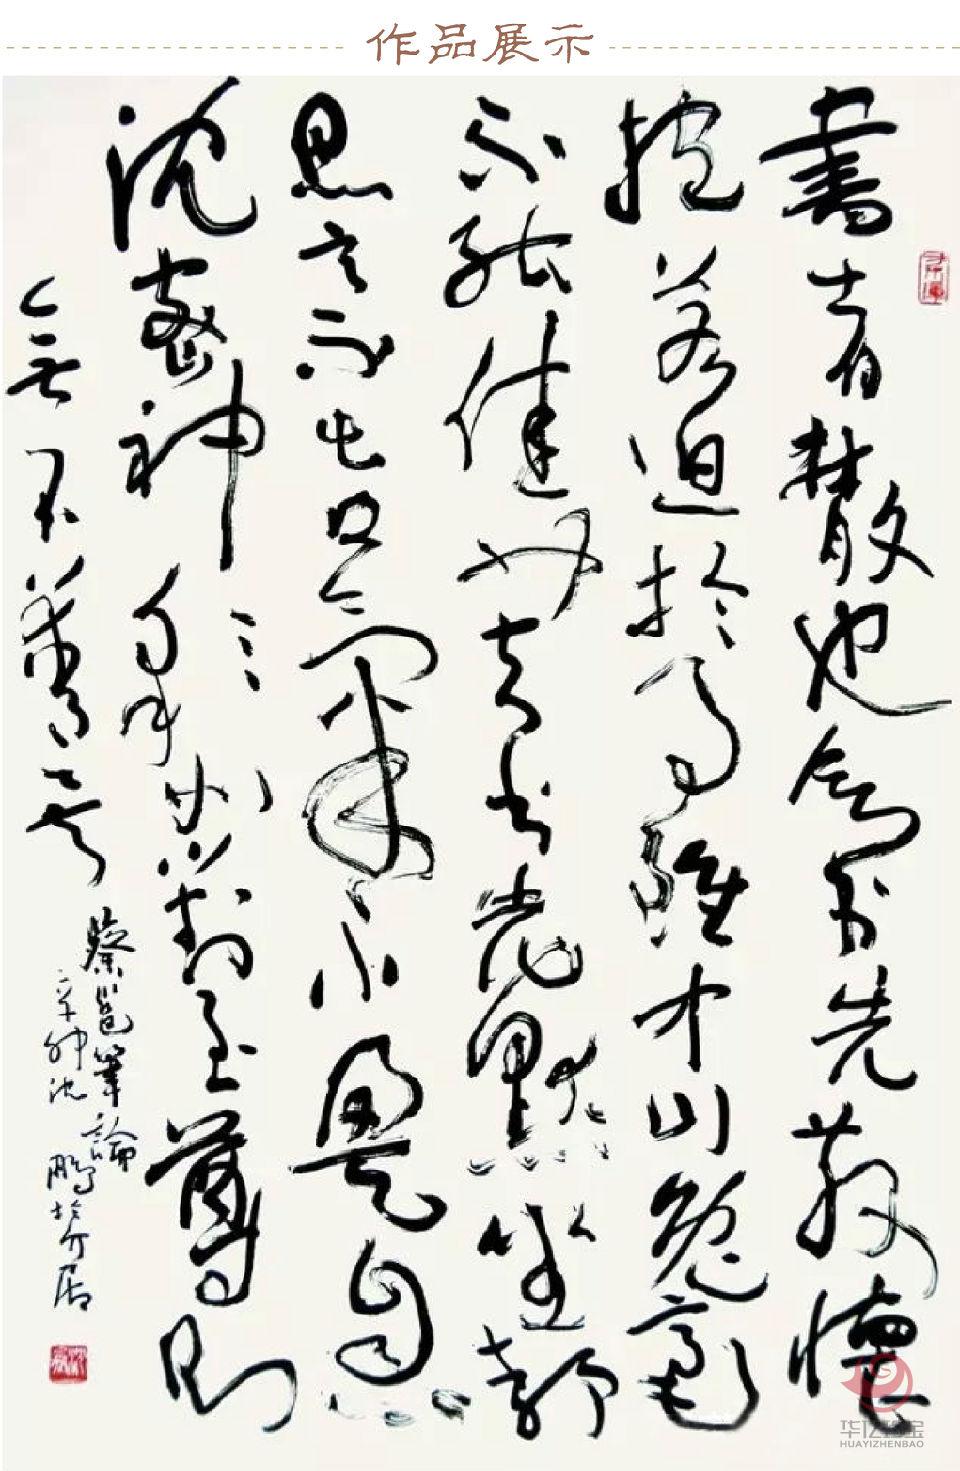 作品展示
書者散也欲書先散懷
抱若迫於事雖中山兔毫
不能佳也夫書先默坐靜
思言不出口氣不盈息
沈密神彩如對至尊則
無不善矣
蔡邕筆論
辛卯沈鵬於介居
华亿珍宝
HUAYIZHENBAO